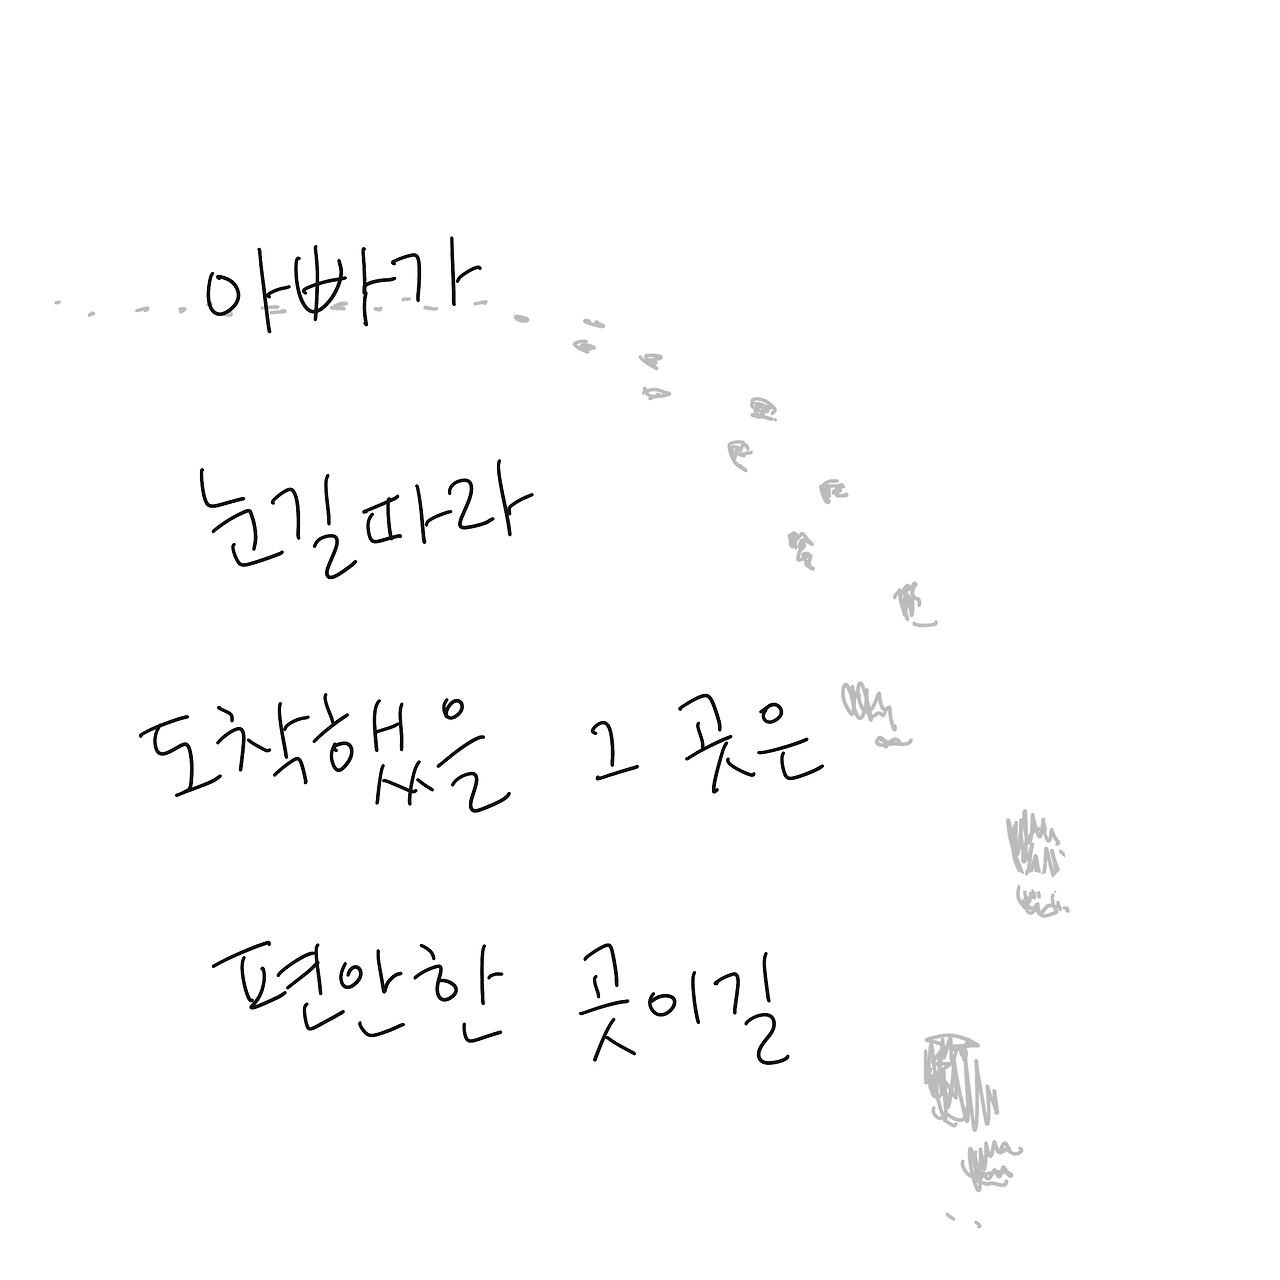 아빠가
눈길따라
도착했을 그 곳은
편안한 곳이길